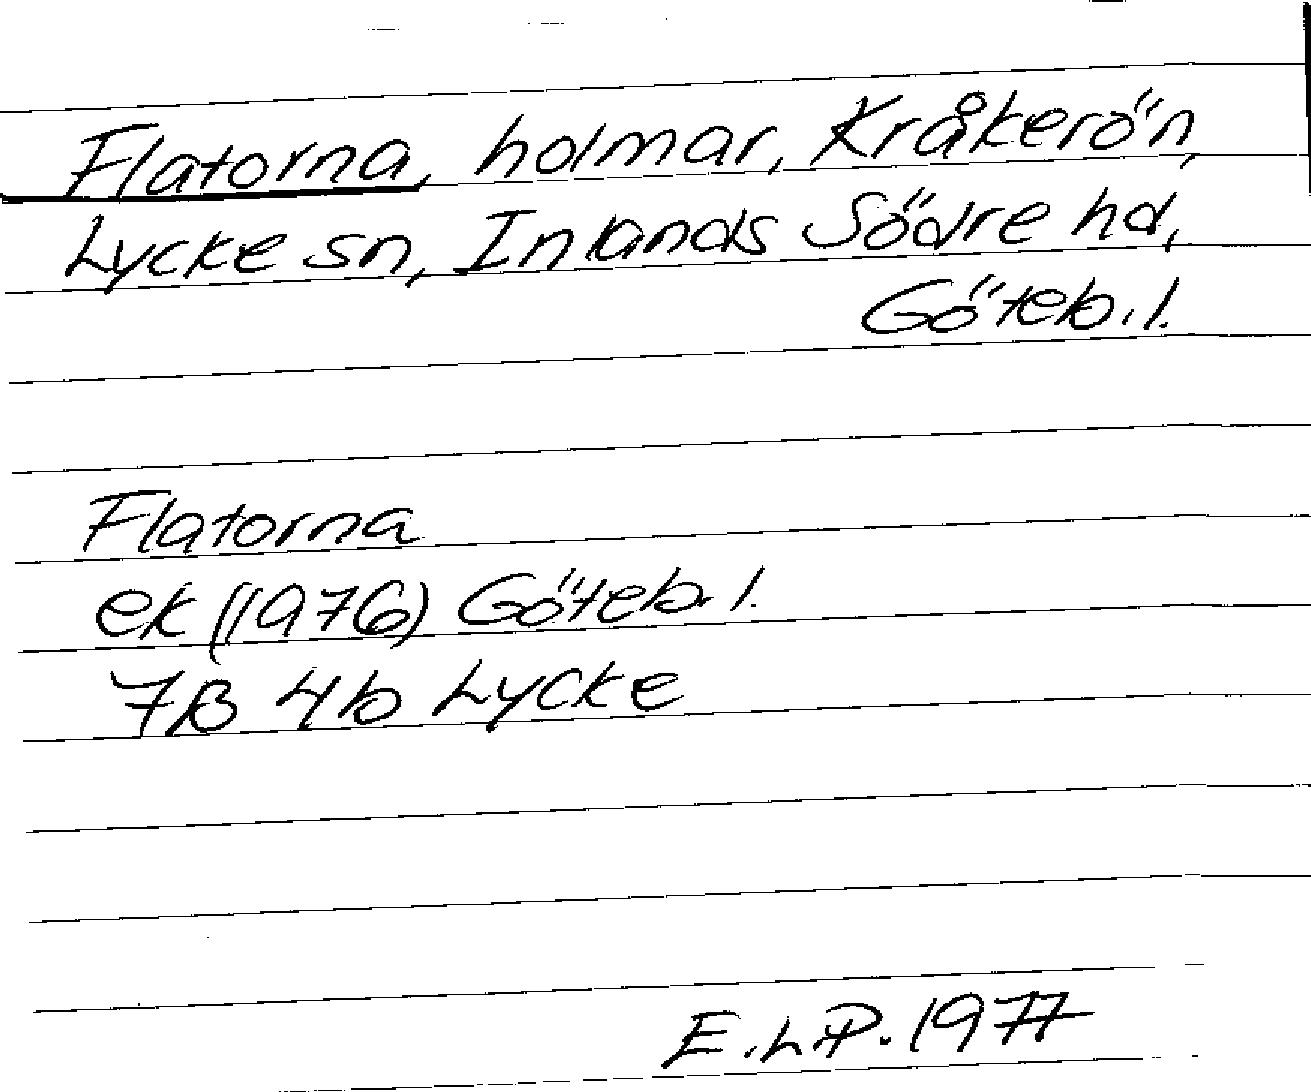 Flatorna, holmar, Kråkerön,
Lycke sn, Inlands Södre hd,
Göteb. l.
Flatorna
ek (1976) Göteb. l.
7B 4b Lycke
E.L.P. 1977